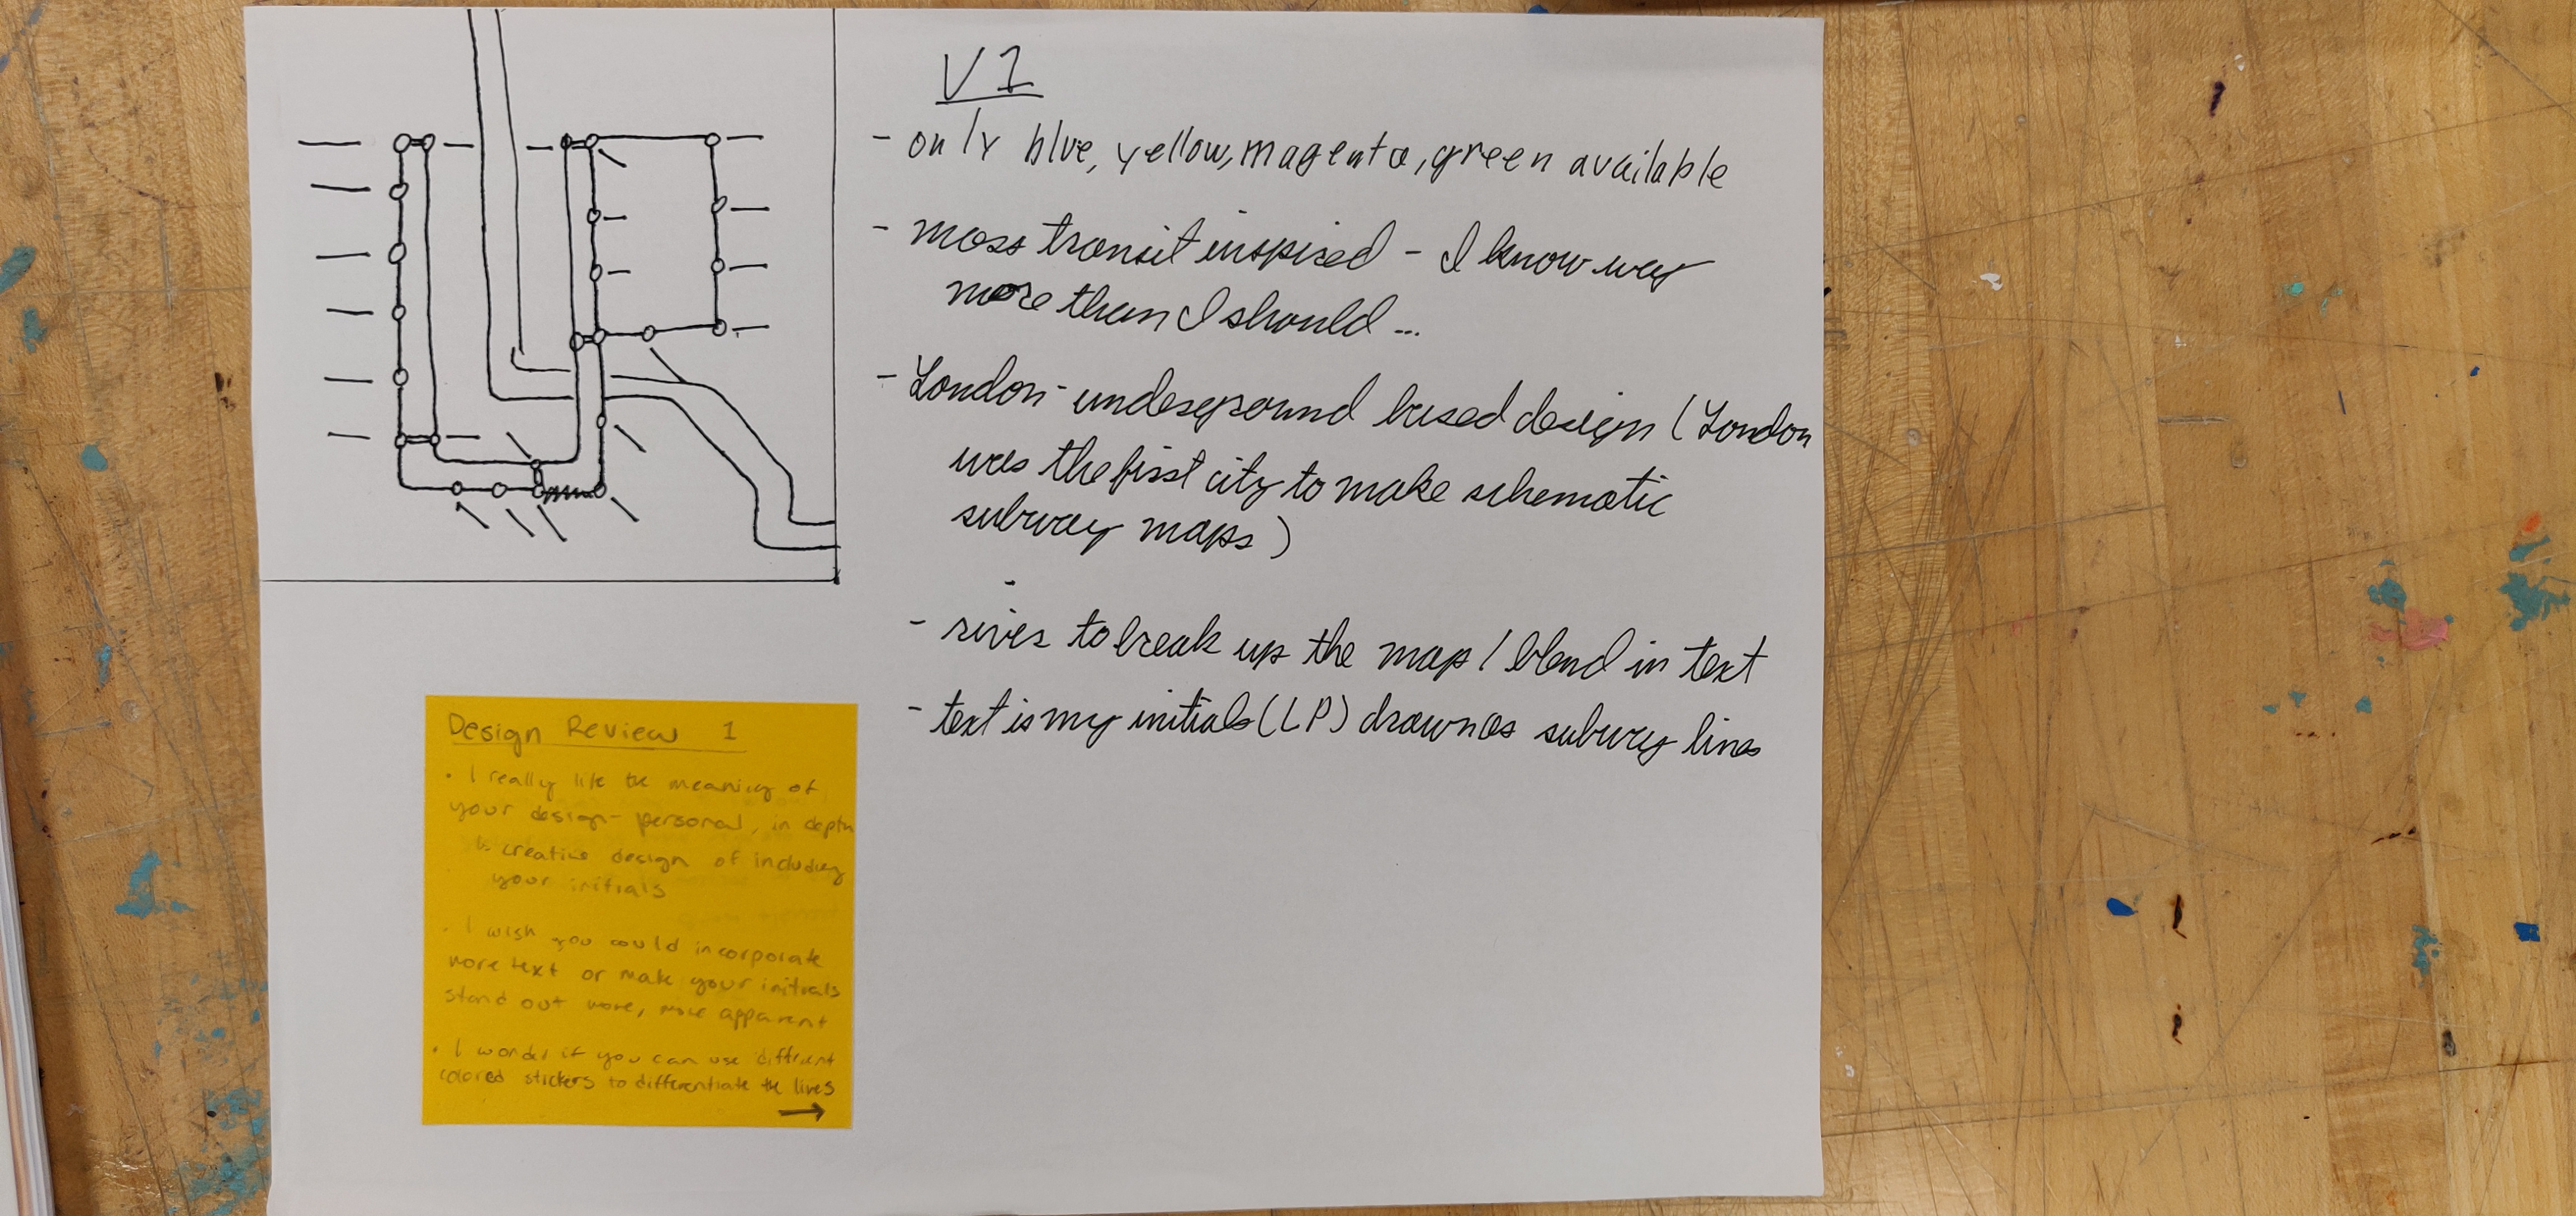 V1
- only blue, yellow, magenta, green available
- mass transit inspired - I know way
more than I should...
- London underground based design (London
was the first city to make schematic
subway maps)
- river to break up the map / blend in text
- text is my initials (LP) drawn as subway lines
Design Review 1
• I really like the meaning of
your design - personal, in depth
& creative design of including
your initials
• I wish you could incorporate
more text or make your initials
stand out more, more apparent
• I wonder if you can use different
colored stickers to differentiate the lines
→